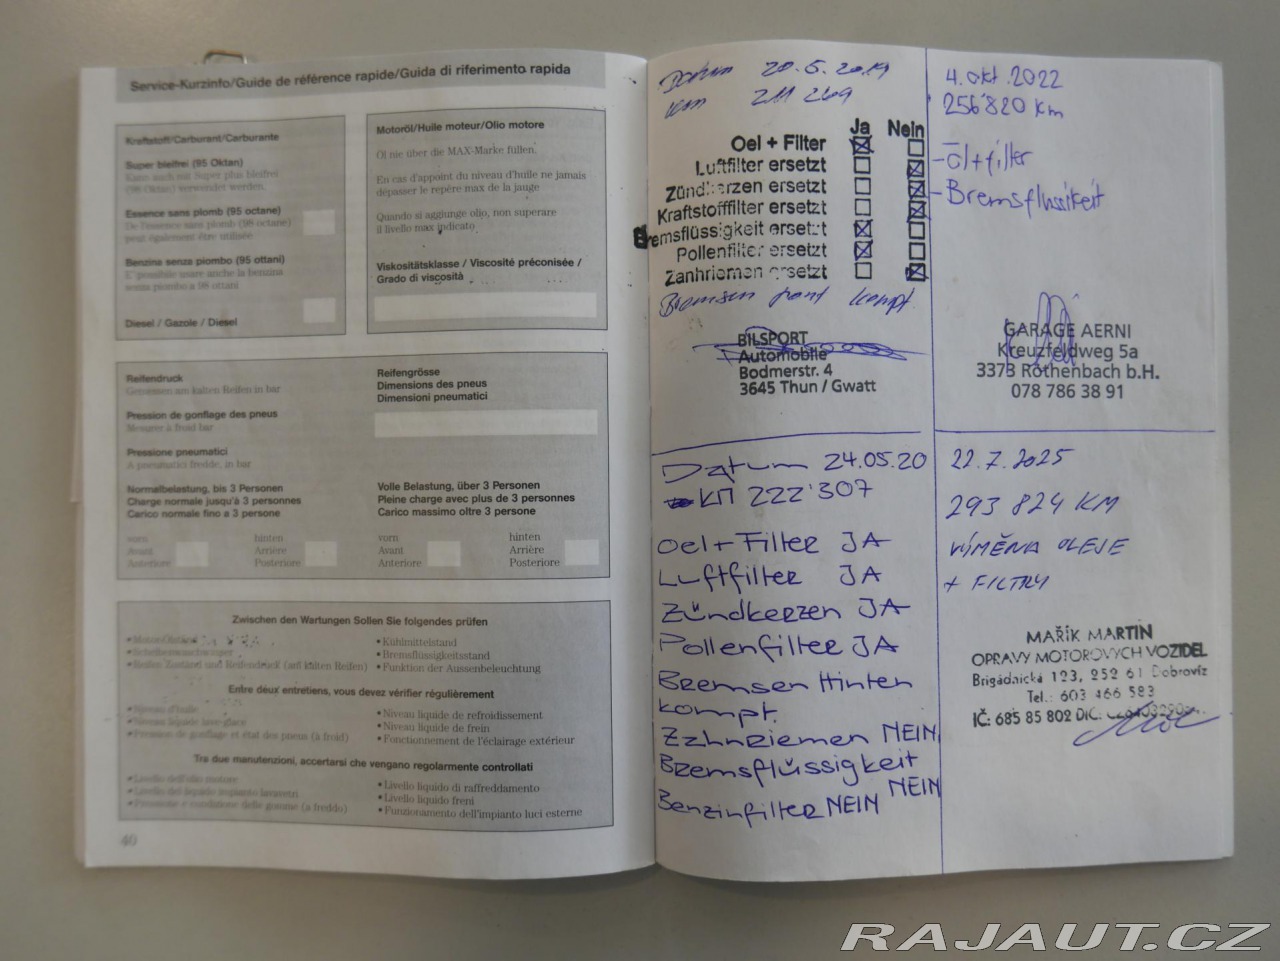 Service-Kurzinfo/Guide de référence rapide/Guida di riferimento rapida
Kraftstoff/Carburant/Carburante
Super bleifrei (95 Oktan)
Kann auch mit Super plus bleifrei
(98 Oktan) verwendet werden.
Essence sans plomb (95 octane)
De l'essence sans plomb (98 octane)
peut également être utilisée
Benzina senza piombo (95 ottani)
E' possibile usare anche la benzina
senza piombo a 98 ottani
Diesel / Gazole / Diesel
Motoröl/Huile moteur/Olio motore
Öl nie über die MAX-Marke füllen.
En cas d'appoint du niveau d'huile ne jamais
dépasser le repère max de la jauge
Quando si aggiunge olio, non superare
il livello max indicato
Viskositätsklasse / Viscosité préconisée /
Grado di viscosità
Reifendruck
Gemessen am kalten Reifen in bar
Pression de gonflage des pneus
Mesurer à froid bar
Pressione pneumatici
A pneumatici freddo, in bar
Reifengrösse
Dimensions des pneus
Dimensioni pneumatici
Normalbelastung, bis 3 Personen
Charge normale jusqu'à 3 personnes
Carico normale fino a 3 persone
Volle Belastung, über 3 Personen
Pleine charge avec plus de 3 personnes
Carico massimo oltre 3 persone
vorn hinten vorn hinten
Avant Arrière Avant Arrière
Anteriore Posteriore Anteriore Posteriore
Zwischen den Wartungen Sollen Sie folgendes prüfen
• Motor-Ölstand
• Scheibenwaschwasser
• Reifen Zustand und Reifendruck (auf kalten Reifen)
• Kühlmittelstand
• Bremsflüssigkeitsstand
• Funktion der Aussenbeleuchtung
Entre deux entretiens, vous devez vérifier régulièrement
• Niveau d'huile
• Niveau liquide lave-glace
• Pression de gonflage et état des pneus (à froid)
• Niveau liquide de refroidissement
• Niveau liquide de frein
• Fonctionnement de l'éclairage extérieur
Tra due manutenzioni, accertarsi che vengano regolarmente controllati
• Livello dell'olio motore
• Livello del liquido impianto lavavetri
• Pressione e condizione delle gomme (a freddo)
• Livello liquido di raffreddamento
• Livello liquido freni
• Funzionamento dell'impianto luci esterne
40
Datum 20.5.2019
km 211 269
Ja Nein
Oel + Filter
Luftfilter ersetzt
Zündkerzen ersetzt
Kraftstofffilter ersetzt
Bremsflüssigkeit ersetzt
Pollenfilter ersetzt
Zanhriemen ersetzt
Bremsen front kompt.
BILSPORT
Automobile
Bodmerstr. 4
3645 Thun / Gwatt
4. okt. 2022
256'820 km
- Öl+filter
- Bremsflüssikeit
GARAGE AERNI
Kreuzfeldweg 5a
3373 Röthenbach b.H.
078 786 38 91
Datum 24.05.20
KM 222'307
Oel+Filter JA
Luftfilter JA
Zündkerzen JA
Pollenfilter JA
Bremsen Hinten
kompt.
Zahnriemen NEIN
Bremsflüssigkeit
NEIN
Benzinfilter NEIN
22.7.2025
293 824 KM
VÝMĚNA OLEJE
+ FILTRY
MAŘÍK MARTIN
OPRAVY MOTOROVÝCH VOZIDEL
Brigádnická 123, 252 61 Dobrovíz
Tel.: 603 466 583
IČ: 685 85 802 DIČ:
RAJAUT.CZ